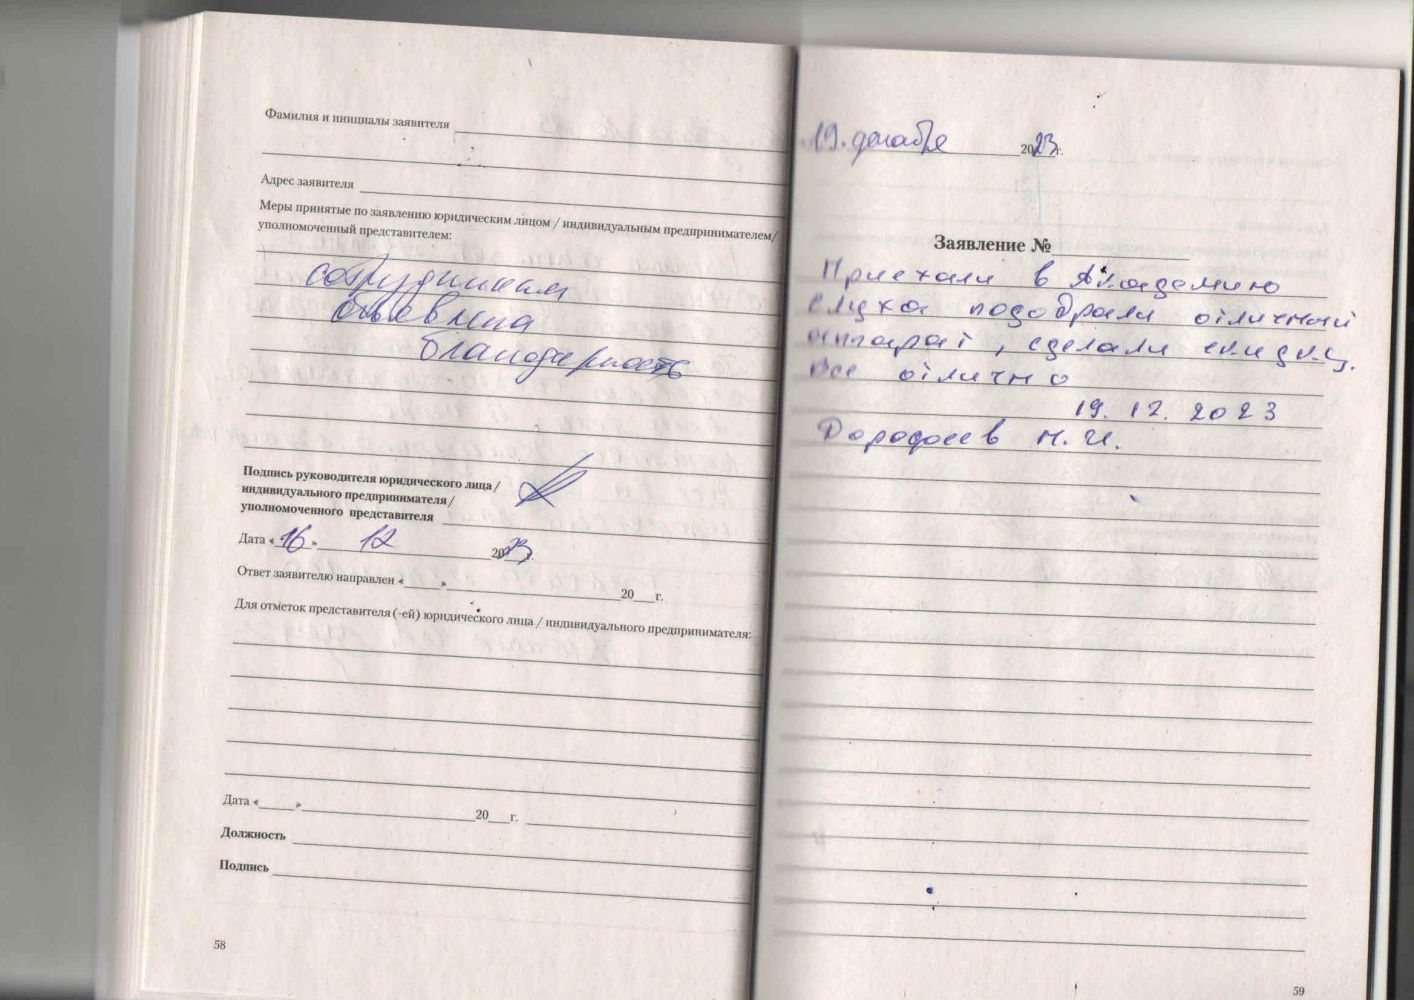 Фамилия и инициалы заявителя
Адрес заявителя
Меры принятые по заявлению юридическим лицом / индивидуальным предпринимателем/
уполномоченный представителем:
сотрудникам
объявлена
благодарность
Подпись руководителя юридического лица /
индивидуального предпринимателя /
уполномоченного представителя
Дата « 16 » 12 2023 г.
Ответ заявителю направлен «____» 20___г.
Для отметок представителя (-ей) юридического лица / индивидуального предпринимателя:
Дата «_____» 20___г.
Должность
Подпись
58
19. декабря 2023 г.
Заявление №
Приехали в Академию
слуха подобрали отличный
аппарат, сделали скидку.
Все отлично
19. 12. 2023
Дорофеев Н. И.
59